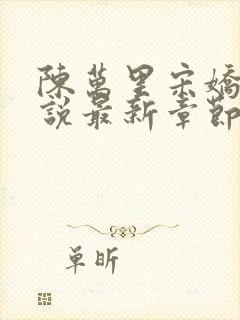 陳萬里宋嬌
說最新章節
单昕